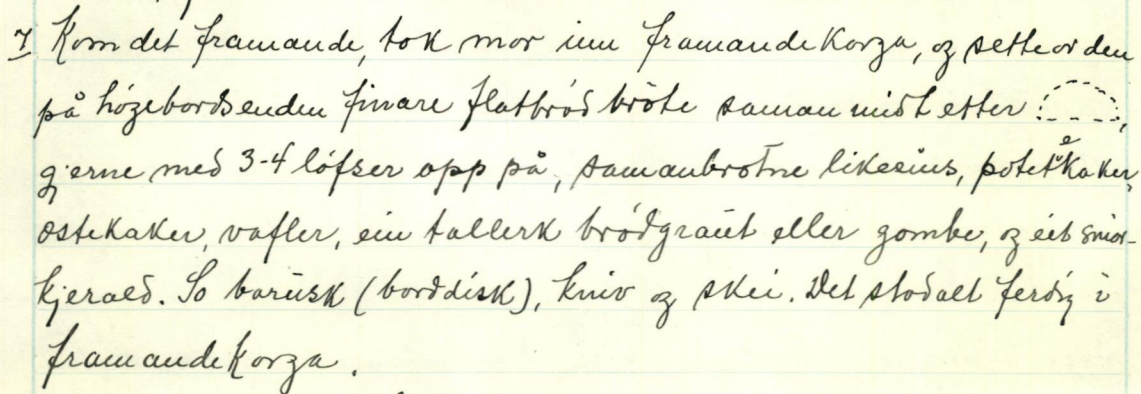 7 Kom det framande, tok mor inn framandekorga, og sette or den
på högebordsenden finare flatbröd bröte saman midt etter,
gjerne med 3-4 löfser opp på, samanbrotne likeeins, potetekaker,
ostekaker, vafler, ein tallerk brödgraut eller gombe, og eit smör-
kjerald. So borusk (borddisk), kniv og skei. Det stod alt ferdig i
framandekorga.